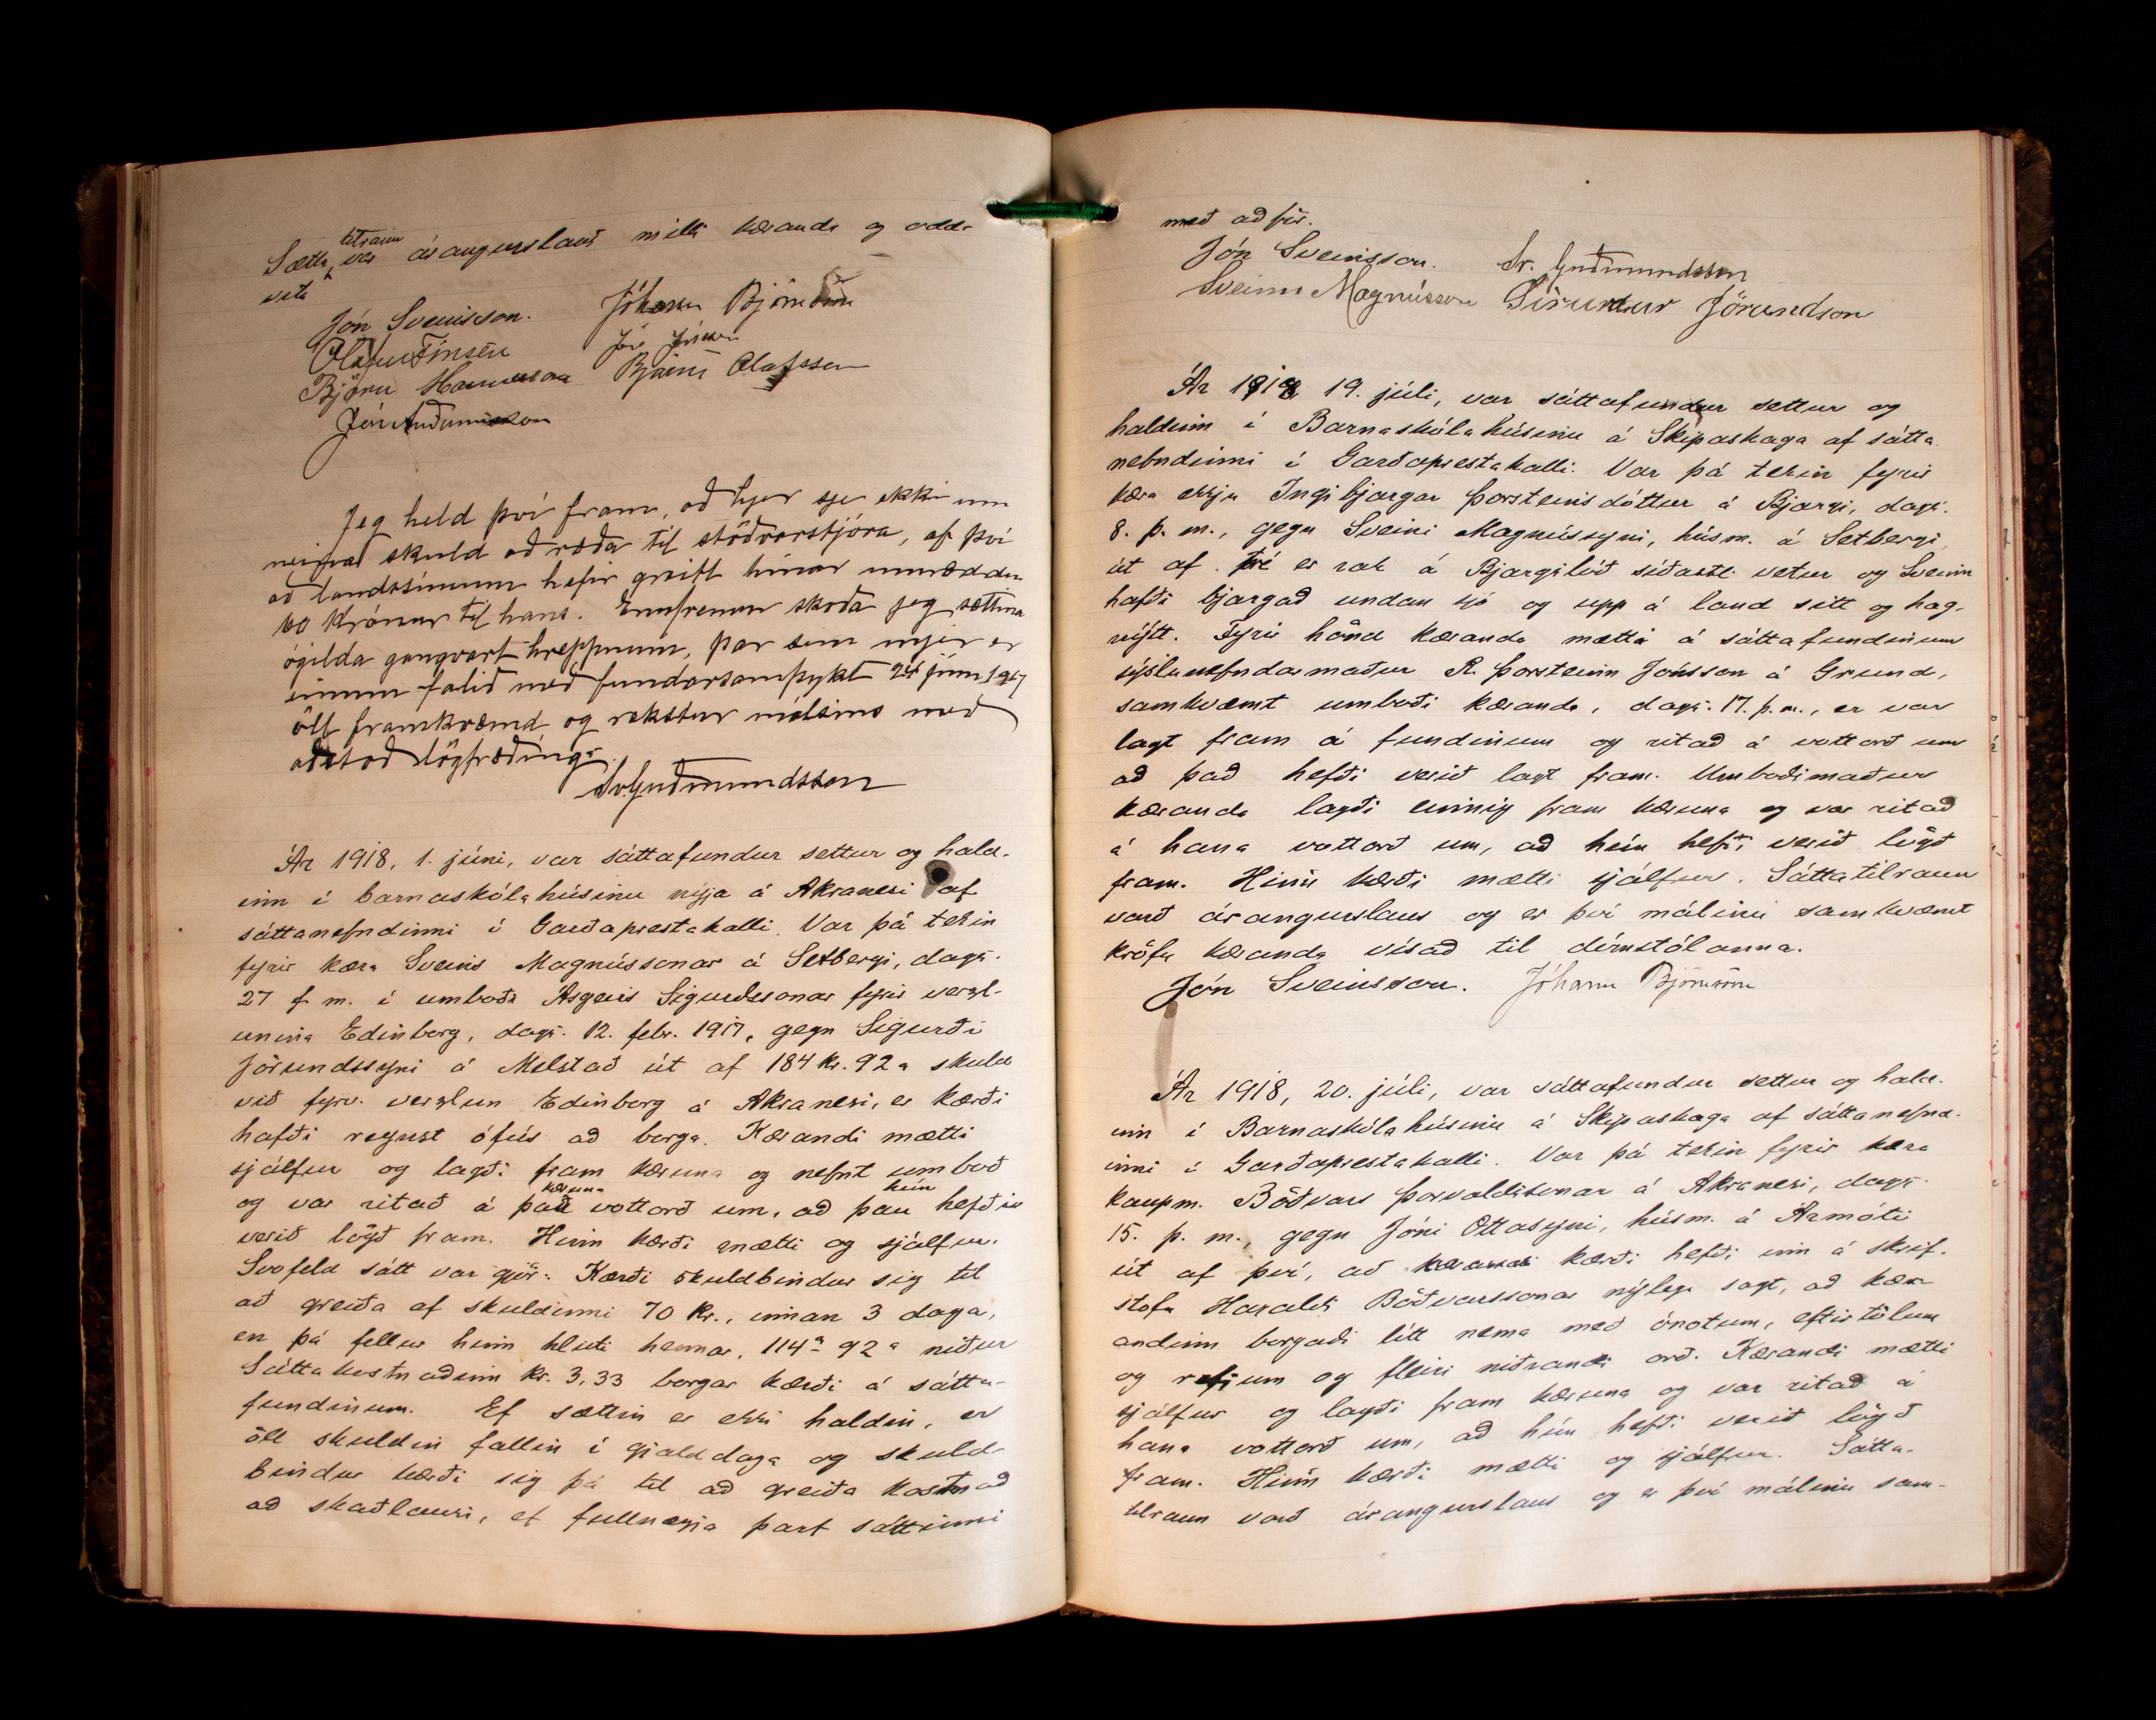 Sátta tilraun var árangurslaus milli kæranda og odd-
vita
Jón Sveinsson. Jóhann Björnsson
Ólafur Finsen Jón Jónsson
Björn Hannesson Bjarni Ólafsson
Jón Auðunsson
Jeg held því fram, að hjer sje ekki um
neina skuld að ræða til stöðvarstjóra, af því
að landssíminn hefir greitt hinar umræddu
60 krónur til hans. Ennfremur skoða jeg sættina
ógilda gangvart hreppnum, þar sem mjer er
einum falið með fundarsamþykt 25 júní 1917
öll framkvæmd og rekstur málsins með
aðstoð lögfræðings.
Sv. Guðmundsson
Ár 1918, 1. júní, var sáttafundur settur og hald-
inn í barnaskólahúsinu nýja á Akranesi af
sáttanefndinni í Garðaprestakalli. Var þá tekin
fyrir kæra Sveins Magnússonar á Setbergi, dags.
27 f. m. í umboði Ásgeirs Sigurðssonar fyrir verzl-
unina Edinborg, dags. 12. febr. 1917, gegn Sigurði
Jörundssyni á Melstað út af 184 kr. 92 a skuld
við fyrv. verzlun Edinborg á Akranesi, er kærði
hafði reynst ófús að borga. Kærandi mætti
sjálfur og lagði fram kæruna og nefnt umboð
og var ritað á það kæruna vottorð um, að þau hún hefðu
verið lögð fram. Hinn kærði mætti og sjálfur.
Svofeld sátt var gjör: Kærði skuldbindur sig til
að greiða af skuldinni 70 kr., innan 3 daga,
en þá fellur hinn hluti hennar, 114 92 a niður
Sáttakostnaðinn kr. 3,33 borgar kærði á sátta-
fundinum. Ef sættin er ekki haldin, er
öll skuldin fallin í gjalddaga og skuld-
bindur kærði sig þá til að greiða kostnað
að skaðlausu, ef fullnægja þarf sáttinni
með aðför.
Jón Sveinsson. Sv. Guðmundsson
Sveinn Magnússon Sigurður Jörundsson
Ár 1918 19. júlí, var sáttafundur settur og
haldinn í Barnaskólahúsinu á Skipaskaga af sátta
nefndinni í Garðaprestakalli. Var þá tekin fyrir
kæra ekkju Ingibjargar Þorsteinsdóttur á Bjargi, dags.
8. þ. m., gegn Sveini Magnússyni, húsm. á Setbergi,
út af tré er rak á Bjargslóð síðastl. vetur og Sveinn
hafði bjargað undan sjó og upp á land sitt og hag-
nýtt. Fyrir hönd kæranda mætti á sáttafundinum
sýslunefndarmaður Þorsteinn Jónsson á Grund,
samkvæmt umboði kæranda, dags. 17. þ. m., er var
lagt fram á fundinum og ritað á vottorð um
að það hefði verið lagt fram. Umboðsmaður
kæranda lagði einnig fram kæruna og var ritað
á hana vottorð um, að hún hefði verið lögð
fram. Hinn kærði mætti sjálfur. Sáttatilraun
varð árangurslaus og er því málinu samkvæmt
kröfu kæranda vísað til dómstólanna.
Jón Sveinsson. Jóhann Björnsson
Ár 1918, 20. júlí, var sáttafundur settur og hald-
inn í Barnaskólahúsinu á Skipaskaga af sáttanefnd-
inni í Garðaprestakalli. Var þá tekin fyrir kæra
kaupm. Böðvars Þorvaldssonar á Akranesi, dags.
15. þ. m., gegn Jóni Ottasyni, húsm. á Ármóti
út af því, að kærandi kærði hefði inn á skrif-
stofu Haralds Böðvarssonar nýlega sagt, að kær-
andinn borgaði lítt nema með ónotum, eftirtölum
og refjum og fleiri niðrandi orð. Kærandi mætti
sjálfur og lagði fram kæruna og var ritað á
hana vottorð um, að hún hefði verið lögð
fram. Hinn kærði mætti og sjálfur. Sátta-
tilraun varð árangurslaus og er því málinu sam-